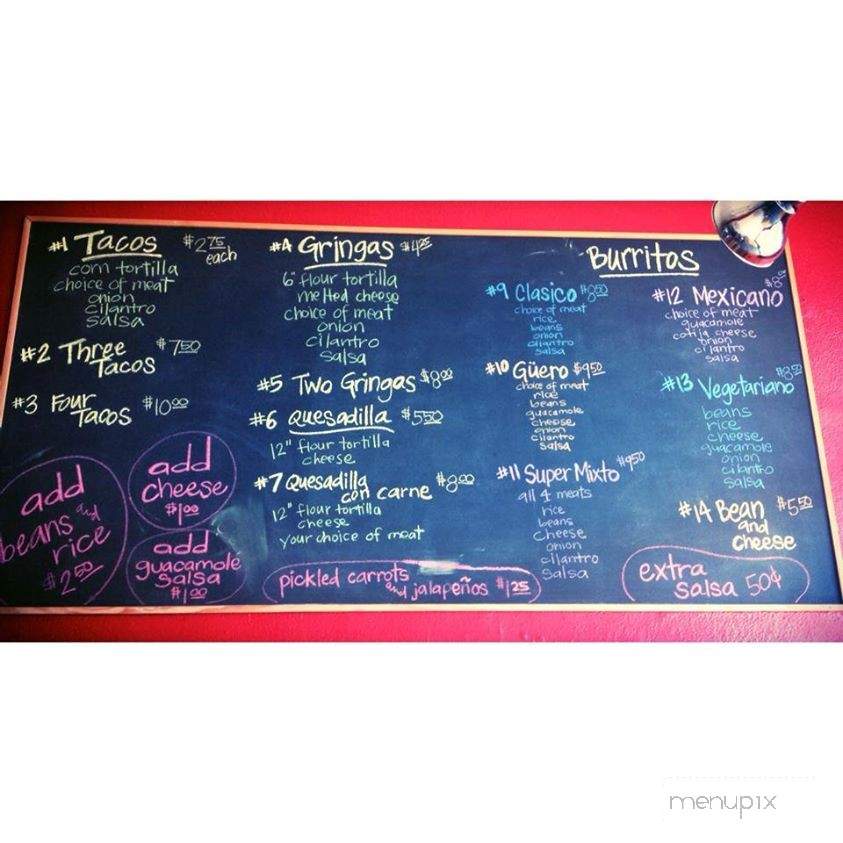 #1 Tacos $2.75 each
corn tortilla
choice of meat
onion
cilantro
salsa
#2 Three Tacos $7.50
#3 Four Tacos $10.00
add beans and rice $2.50
add cheese $1.00
add guacamole salsa $1.00
#4 Gringas $4.25
6" flour tortilla
melted cheese
choice of meat
onion
cilantro
salsa
#5 Two Gringas $8.00
#6 Quesadilla $5.50
12" flour tortilla
cheese
#7 Quesadilla con carne $8.00
12" flour tortilla
cheese
your choice of meat
pickled carrots and jalapeños $1.25
Burritos
#9 Clasico $8.50
choice of meat
rice
beans
onion
cilantro
salsa
#10 Güero $9.50
choice of meat
rice
beans
guacamole
cheese
onion
cilantro
salsa
#11 Super Mixto $9.50
all 4 meats
rice
beans
cheese
onion
cilantro
salsa
#12 Mexicano
choice of meat
guacamole
cotija cheese
onion
cilantro
salsa
#13 Vegetariano $8.50
beans
rice
cheese
guacamole
onion
cilantro
salsa
#14 Bean and cheese $5.50
extra salsa 50¢
menupix